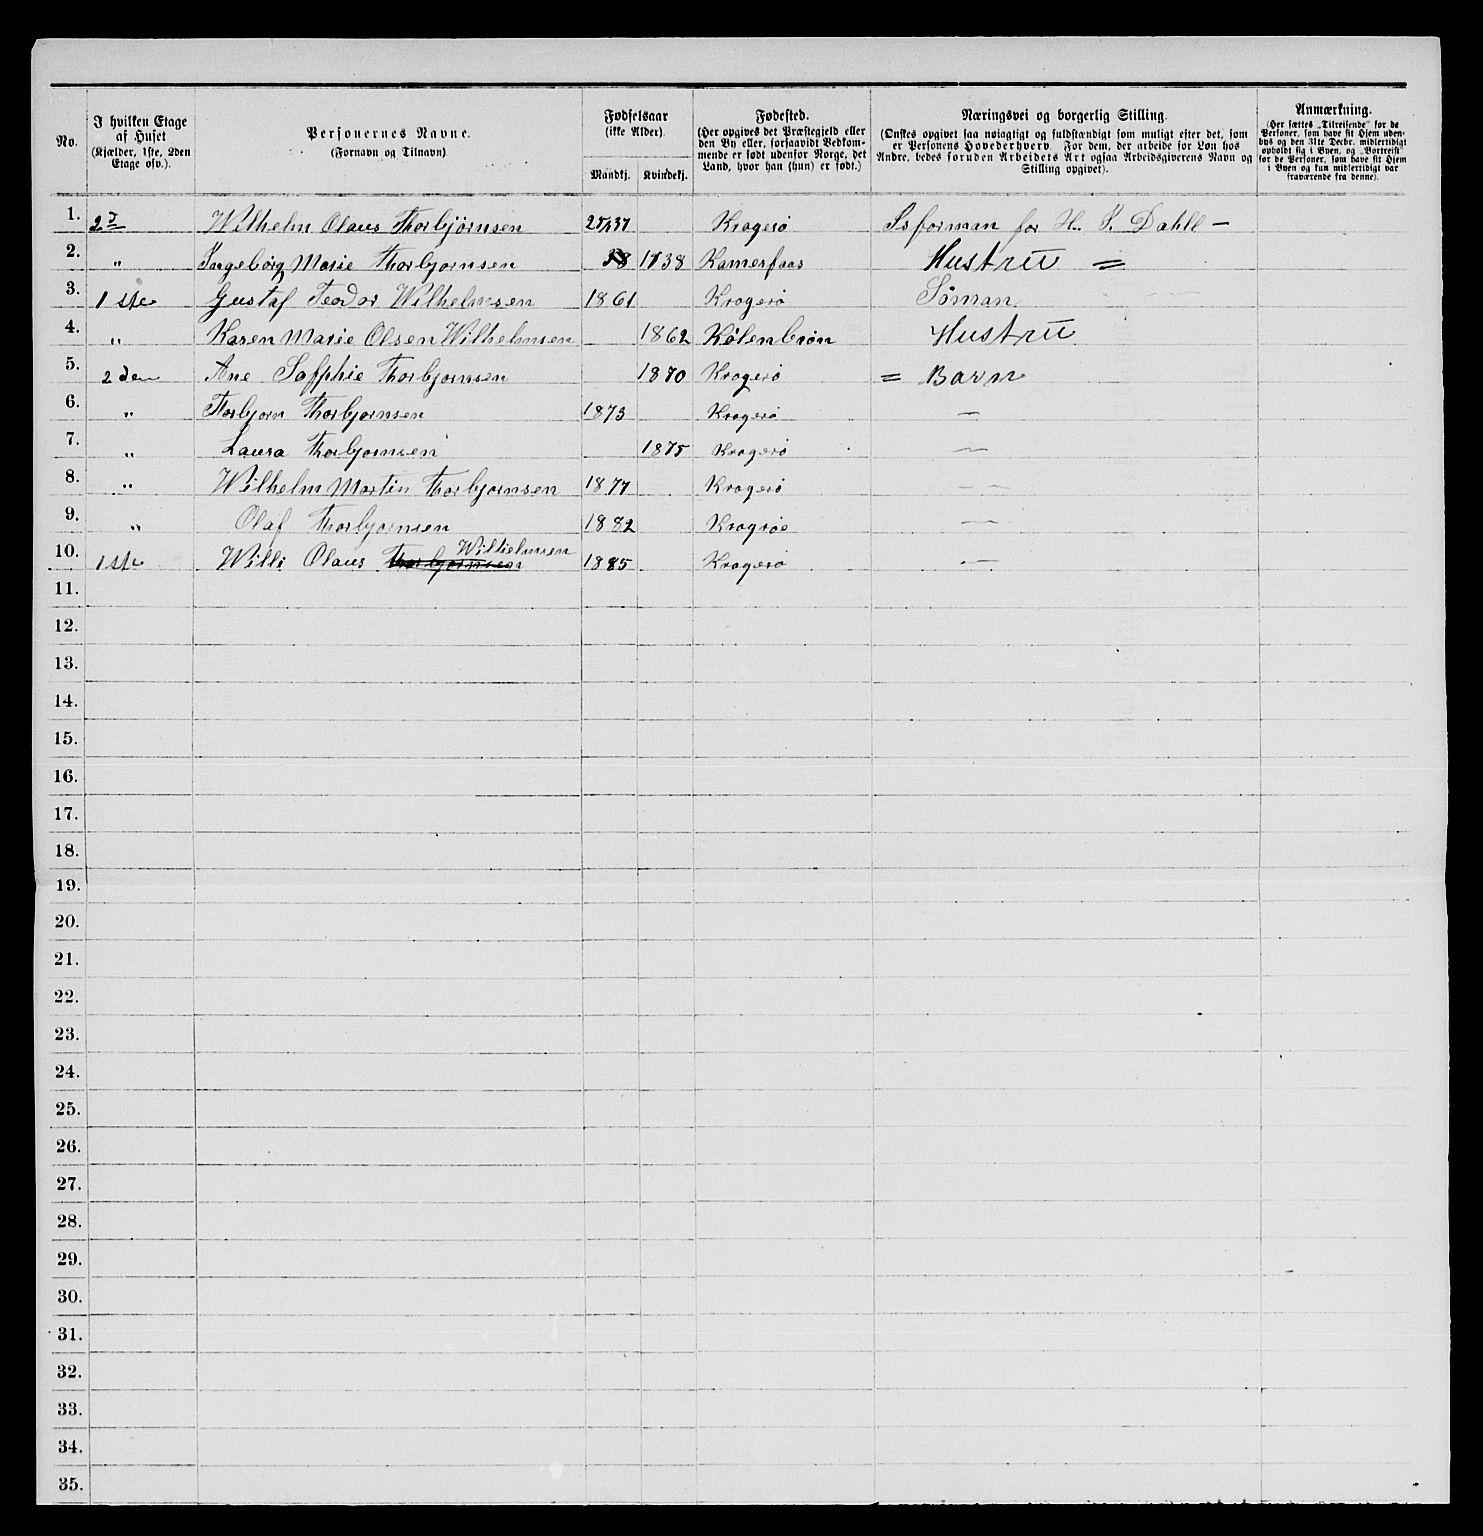 No.
I hvilken Etage af Huset (Kjælder, 1ste, 2den Etage osv.).
Personernes Navne. (Fornavn og Tilnavn)
Fødselsaar (ikke Alder).
Mandkj. Kvindekj.
Fødested. (Her opgives det Præstegjeld eller den By eller, forsaavidt Vedkommende er født udenfor Norge, det Land, hvor han (hun) er født.)
Næringsvei og borgerlig Stilling. (Ønskes opgivet saa nøiagtigt og fuldstændigt som muligt efter det, som er Personens Hovederhverv. For dem, der arbeide for Løn hos Andre, bedes foruden Arbeidets Art ogsaa Arbeidsgiverens Navn og Stilling opgivet).
Anmærkning. (Her sættes „Tilreisende“ for de Personer, som have sit Hjem udenbys og den 31te Decbr. midlertidigt opholdt sig i Byen, og „Bortreist“ for de Personer, som have sit Hjem i Byen og kun midlertidigt var fraværende fra denne).
1. 2d Wilhelm Olaus Thorbjörnsen Kragerö Isforman for H. P. Dahll —
2. „ Ingebörg Marie Thorbjornsen 38 Kamerfaas Hustru =
3. 1 ste Gustaf Teodor Wilhelmsen 1861 Kragerö Söman.
4. „ Karen Marie Olsen Wilhelmsen 1862 Kølenbrøn Hustru
5. 2 den Ane Saffphie Thorbjornsen 1870 Kragerö = Barn
6. „ Torbjorn Thorbjornsen 1873 Kragerö —
7. „ Laura Thorbjornsen 1875 Kragerö —
8. „ Wilhelm Martin Thorbjornsen 1877 Kragerö — —
9. „ Olaf Thorbjornsen 1882 Kragrøe —
10. 1ste Willi Olaus Thorbjornsen Wilhelmsen 1885 Kragerö —
11.
12.
13.
14.
15.
16.
17.
18.
19.
20.
21.
22.
23.
24.
25.
26.
27.
28.
29.
30.
31.
32.
33.
34.
35.